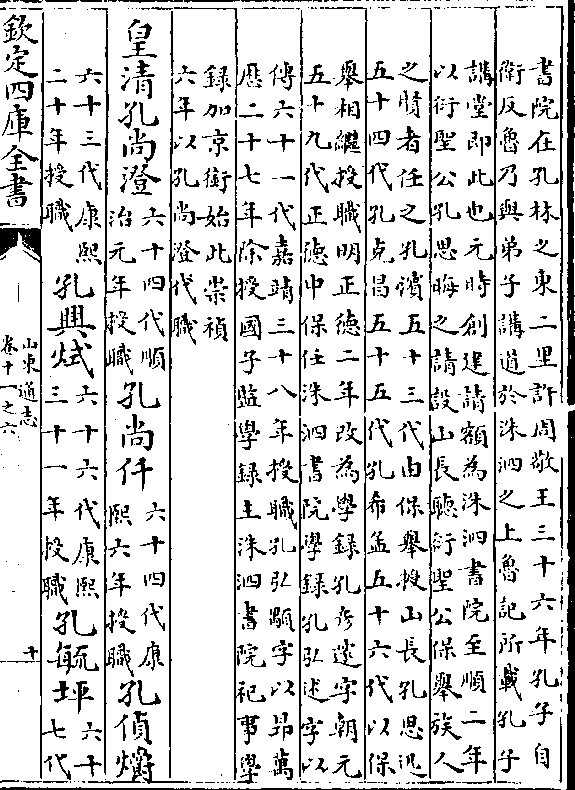 書院在孔林之東二里許周敬王三十六年孔子自
衛反魯乃與弟子講道於洙泗之上魯記所載孔子
講堂即此也元時創建請額為洙泗書院至順二年
以衍聖公孔思晦之請設山長聽衍聖公保舉族人
之賢者任之孔濱五十三代由保舉授山長孔思迅
五十四代孔克昌五十五代孔希孟五十六代以保
舉相繼授職明正德二年改為學録孔彦達字朝元
五十九代正德中保任洙泗書院學録孔弘述字以
傳六十一代嘉靖三十八年授職孔弘顯字以昂萬
歴二十七年除授國子監學録主洙泗書院祀事學
録加京銜始此崇禎
六年以孔尚澄代職
皇清孔尚澄六十四代順治元年授職孔尚仟六十四代康熙六年授職孔貞燽
六十三代康熙二十年授職孔興烒六十六代康熙三十一年授職孔毓坪六十七代
欽定四庫全書
山東通志
卷十一之六
十